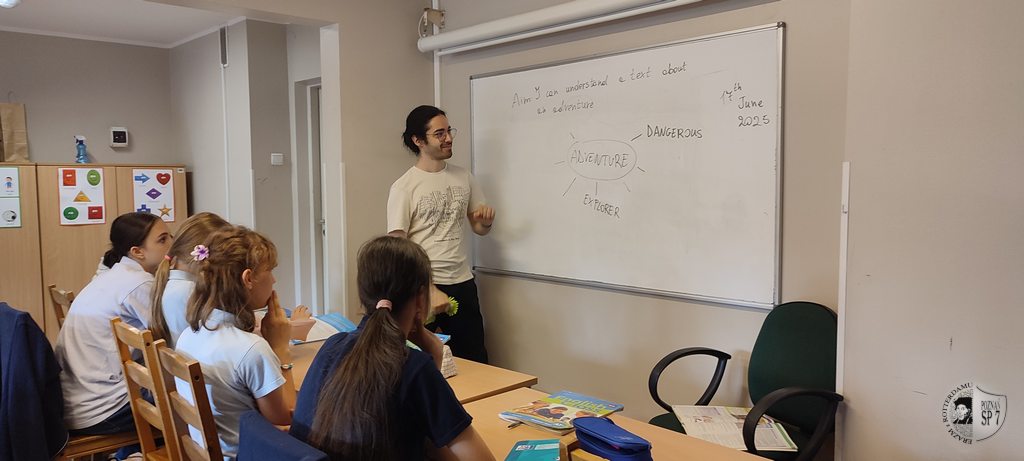 Aim: I can understand a text about
an adventure
17th June
2025
ADVENTURE
DANGEROUS
EXPLORER
ERAZM Z ROTTERDAMU
POZNAŃ
SP 7